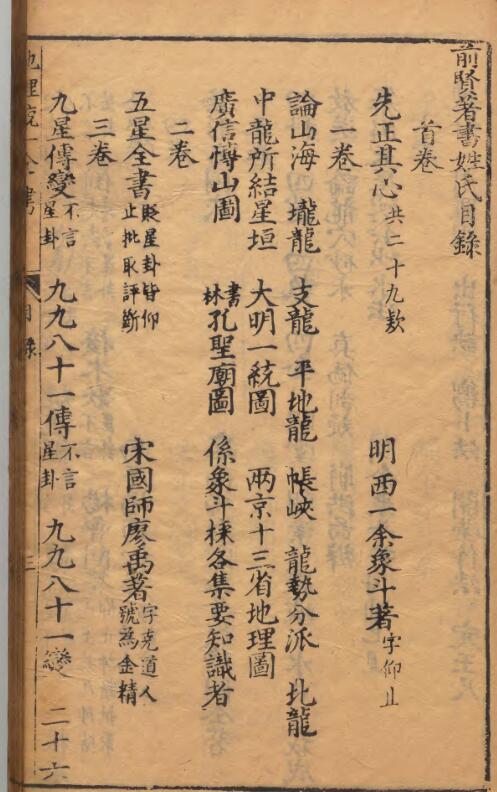 前賢著書姓氏目錄
首卷
先正其心共二十九款 明西一余象斗著字仰止
一卷
論山海 壠龍 支龍 平地龍 帳峽 龍勢分派 北龍
中龍所結星垣 大明一統圖 兩京十三省地理圖
廣信博山圖 書林孔聖廟圖 係象斗採各集要知識者
二卷
五星全書貶星卦皆仰止批取評斷 宋國師廖禹著字克道人號為金精
三卷
九星傳變不言星卦 九九八十一傳不言星卦 九九八十一變 二十六
地理 全書 目錄 三